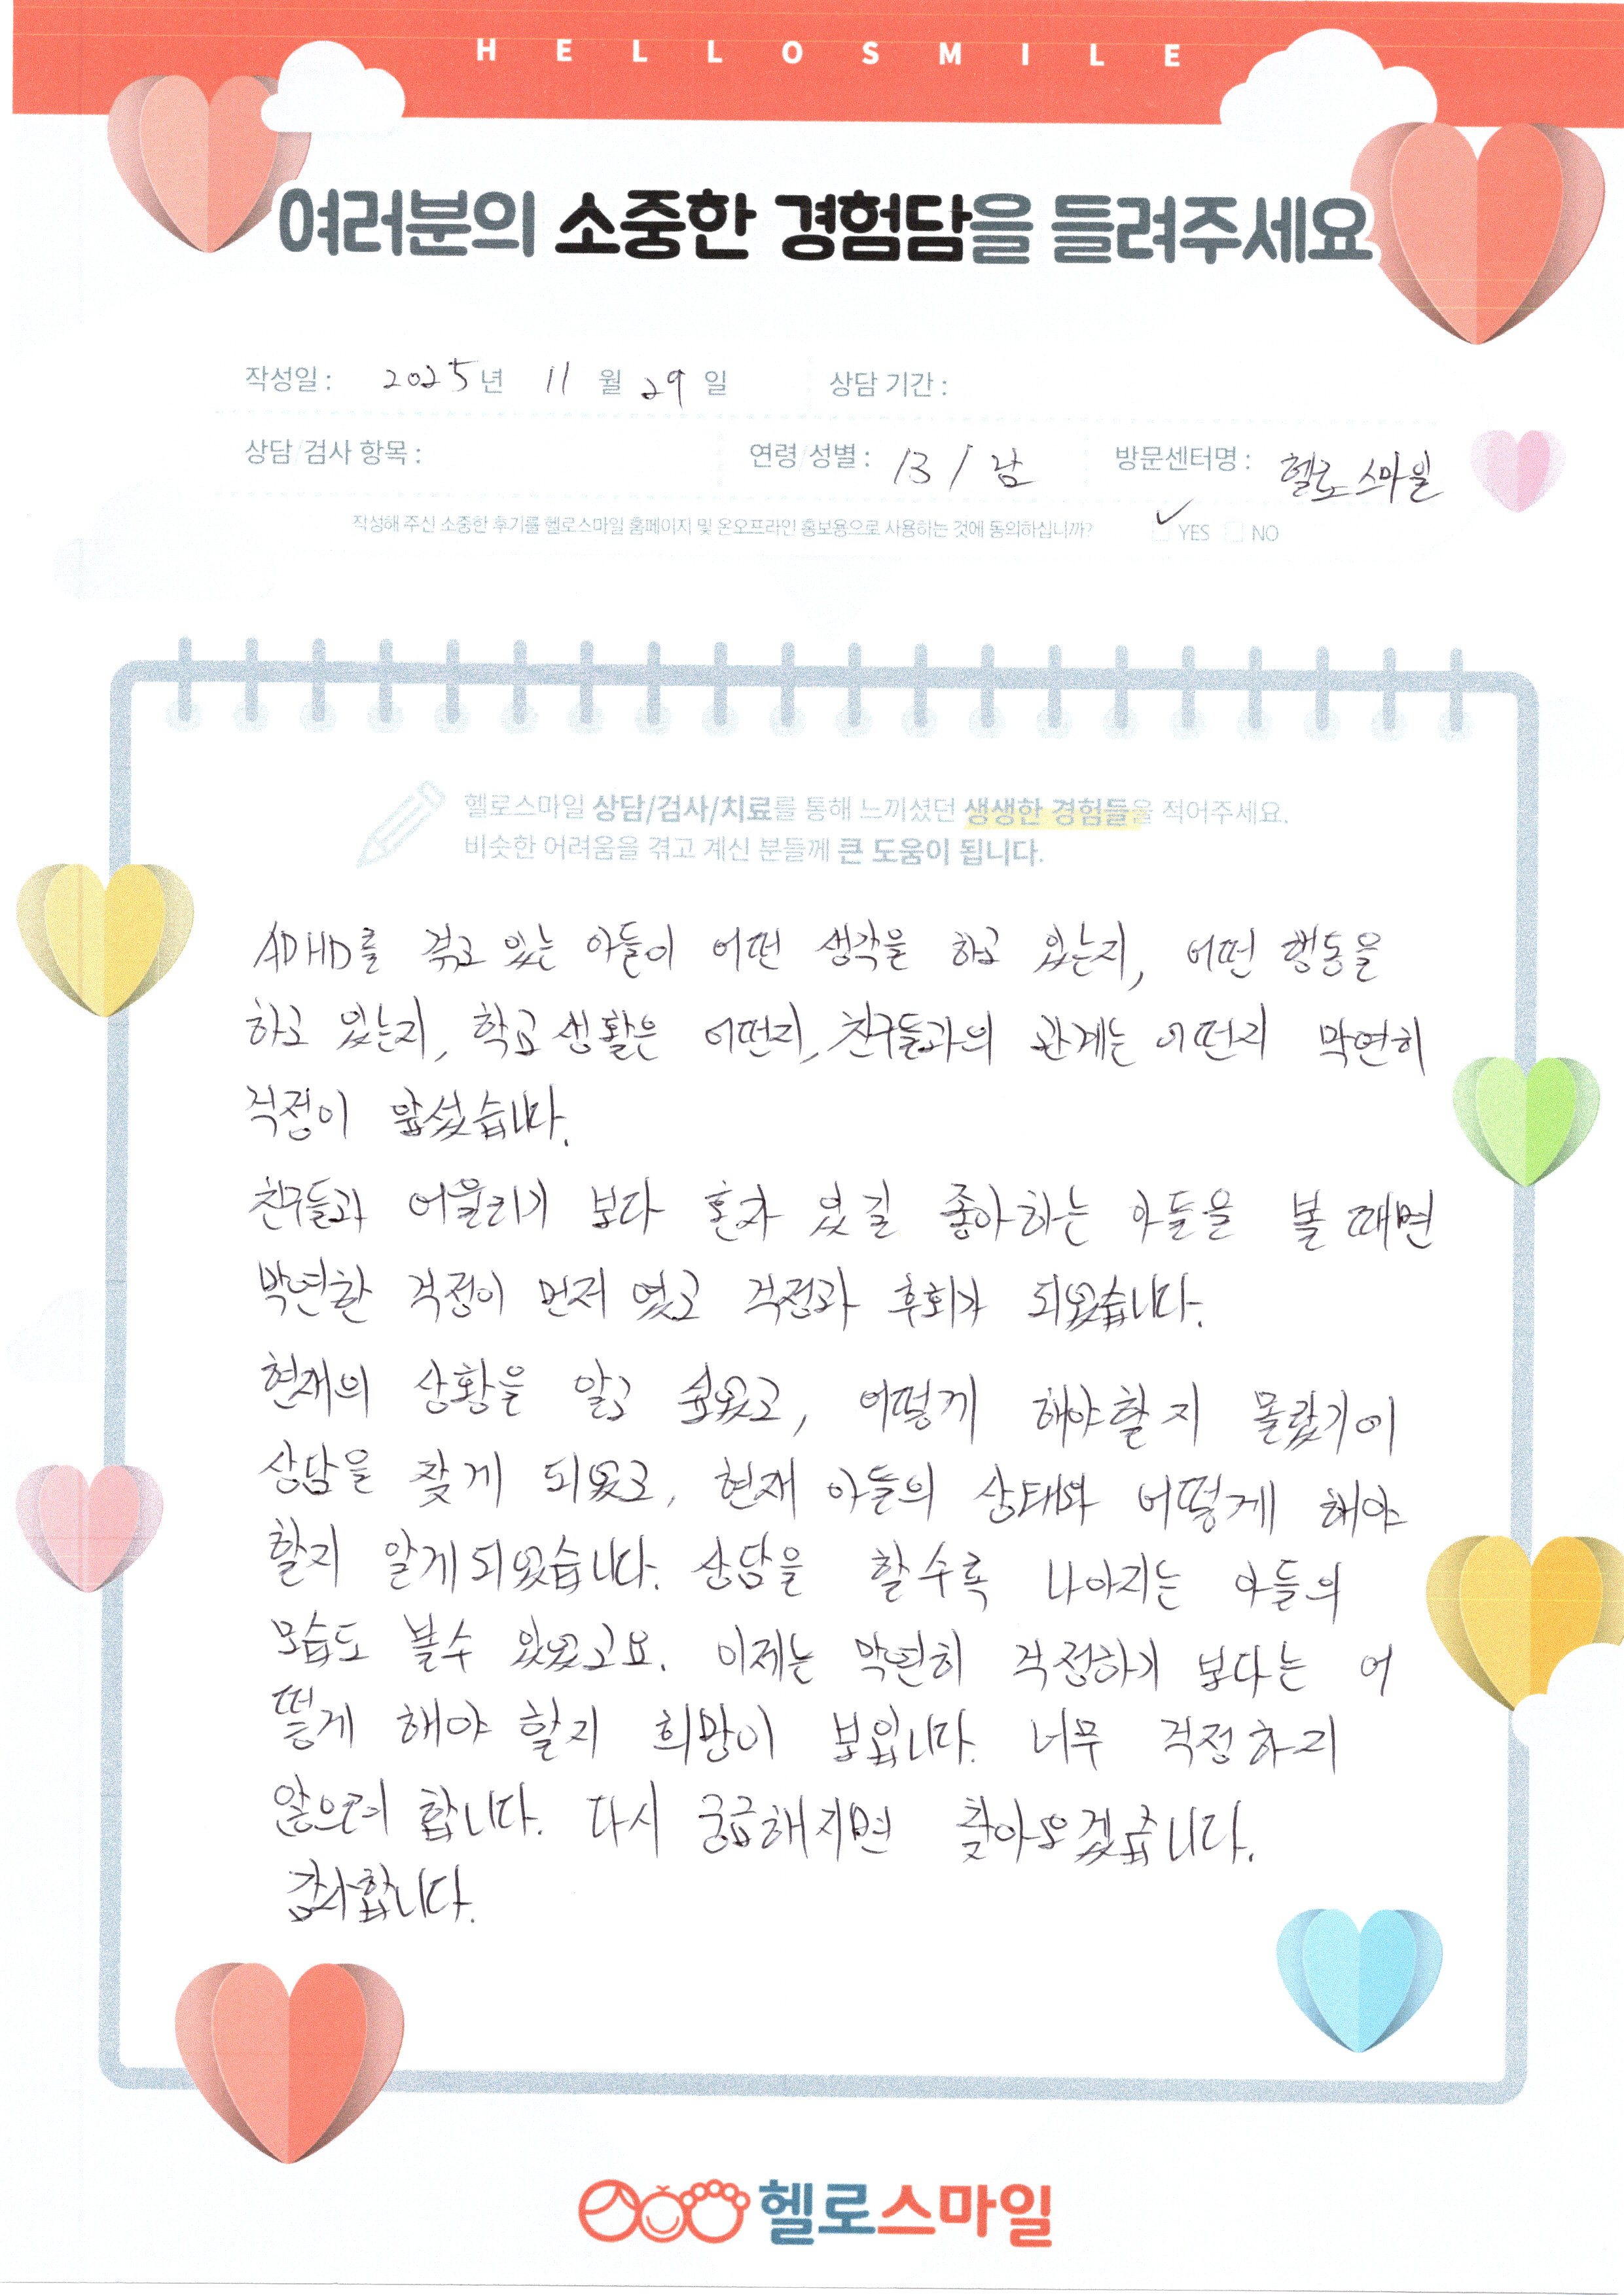 HELLOSMILE
여러분의 소중한 경험담을 들려주세요
작성일 : 2025년 11월 29일 상담 기간 :
상담/검사 항목 : 연령/성별 : 13 / 남 방문센터명 : 헬로스마일
작성해 주신 소중한 후기를 헬로스마일 홈페이지 및 온오프라인 홍보용으로 사용하는 것에 동의하십니까? ✓ YES NO
헬로스마일 상담/검사/치료를 통해 느끼셨던 생생한 경험들을 적어주세요.
비슷한 어려움을 겪고 계신 분들께 큰 도움이 됩니다.
ADHD를 겪고 있는 아들이 어떤 생각을 하고 있는지, 어떤 행동을
하고 있는지, 학교생활은 어떤지, 친구들과의 관계는 어떤지 막연히
걱정이 앞섰습니다.
친구들과 어울리기 보다 혼자 있길 좋아하는 아들을 볼 때면
막연한 걱정이 먼저 였고 걱정과 후회가 되었습니다.
현재의 상황을 알고 싶었고, 어떻게 해야할지 몰랐기에
상담을 찾게 되었고, 현재 아들의 상태와 어떻게 해야
할지 알게되었습니다. 상담을 할수록 나아지는 아들의
모습도 볼수 있었고요. 이제는 막연히 걱정하기 보다는 어
떻게 해야 할지 희망이 보입니다. 너무 걱정하지
않으려 합니다. 다시 궁금해지면 찾아오겠습니다.
감사합니다.
헬로스마일